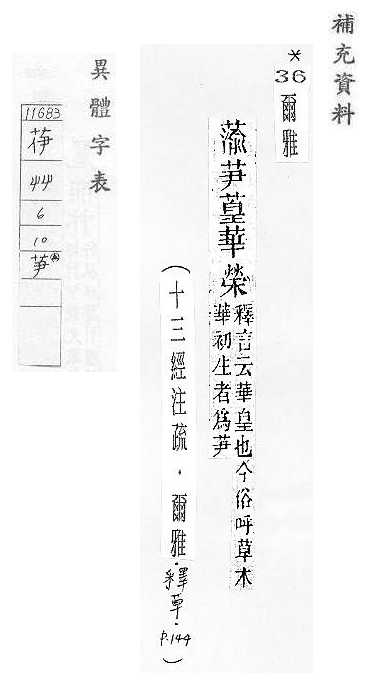 補充資料
*
36
爾雅
蕍芛葟華榮
釋言云華皇也今俗呼草木
華初生者為芛
(十三經注疏.爾雅.釋草.p.144)
異體字表
11683
艸
6
10